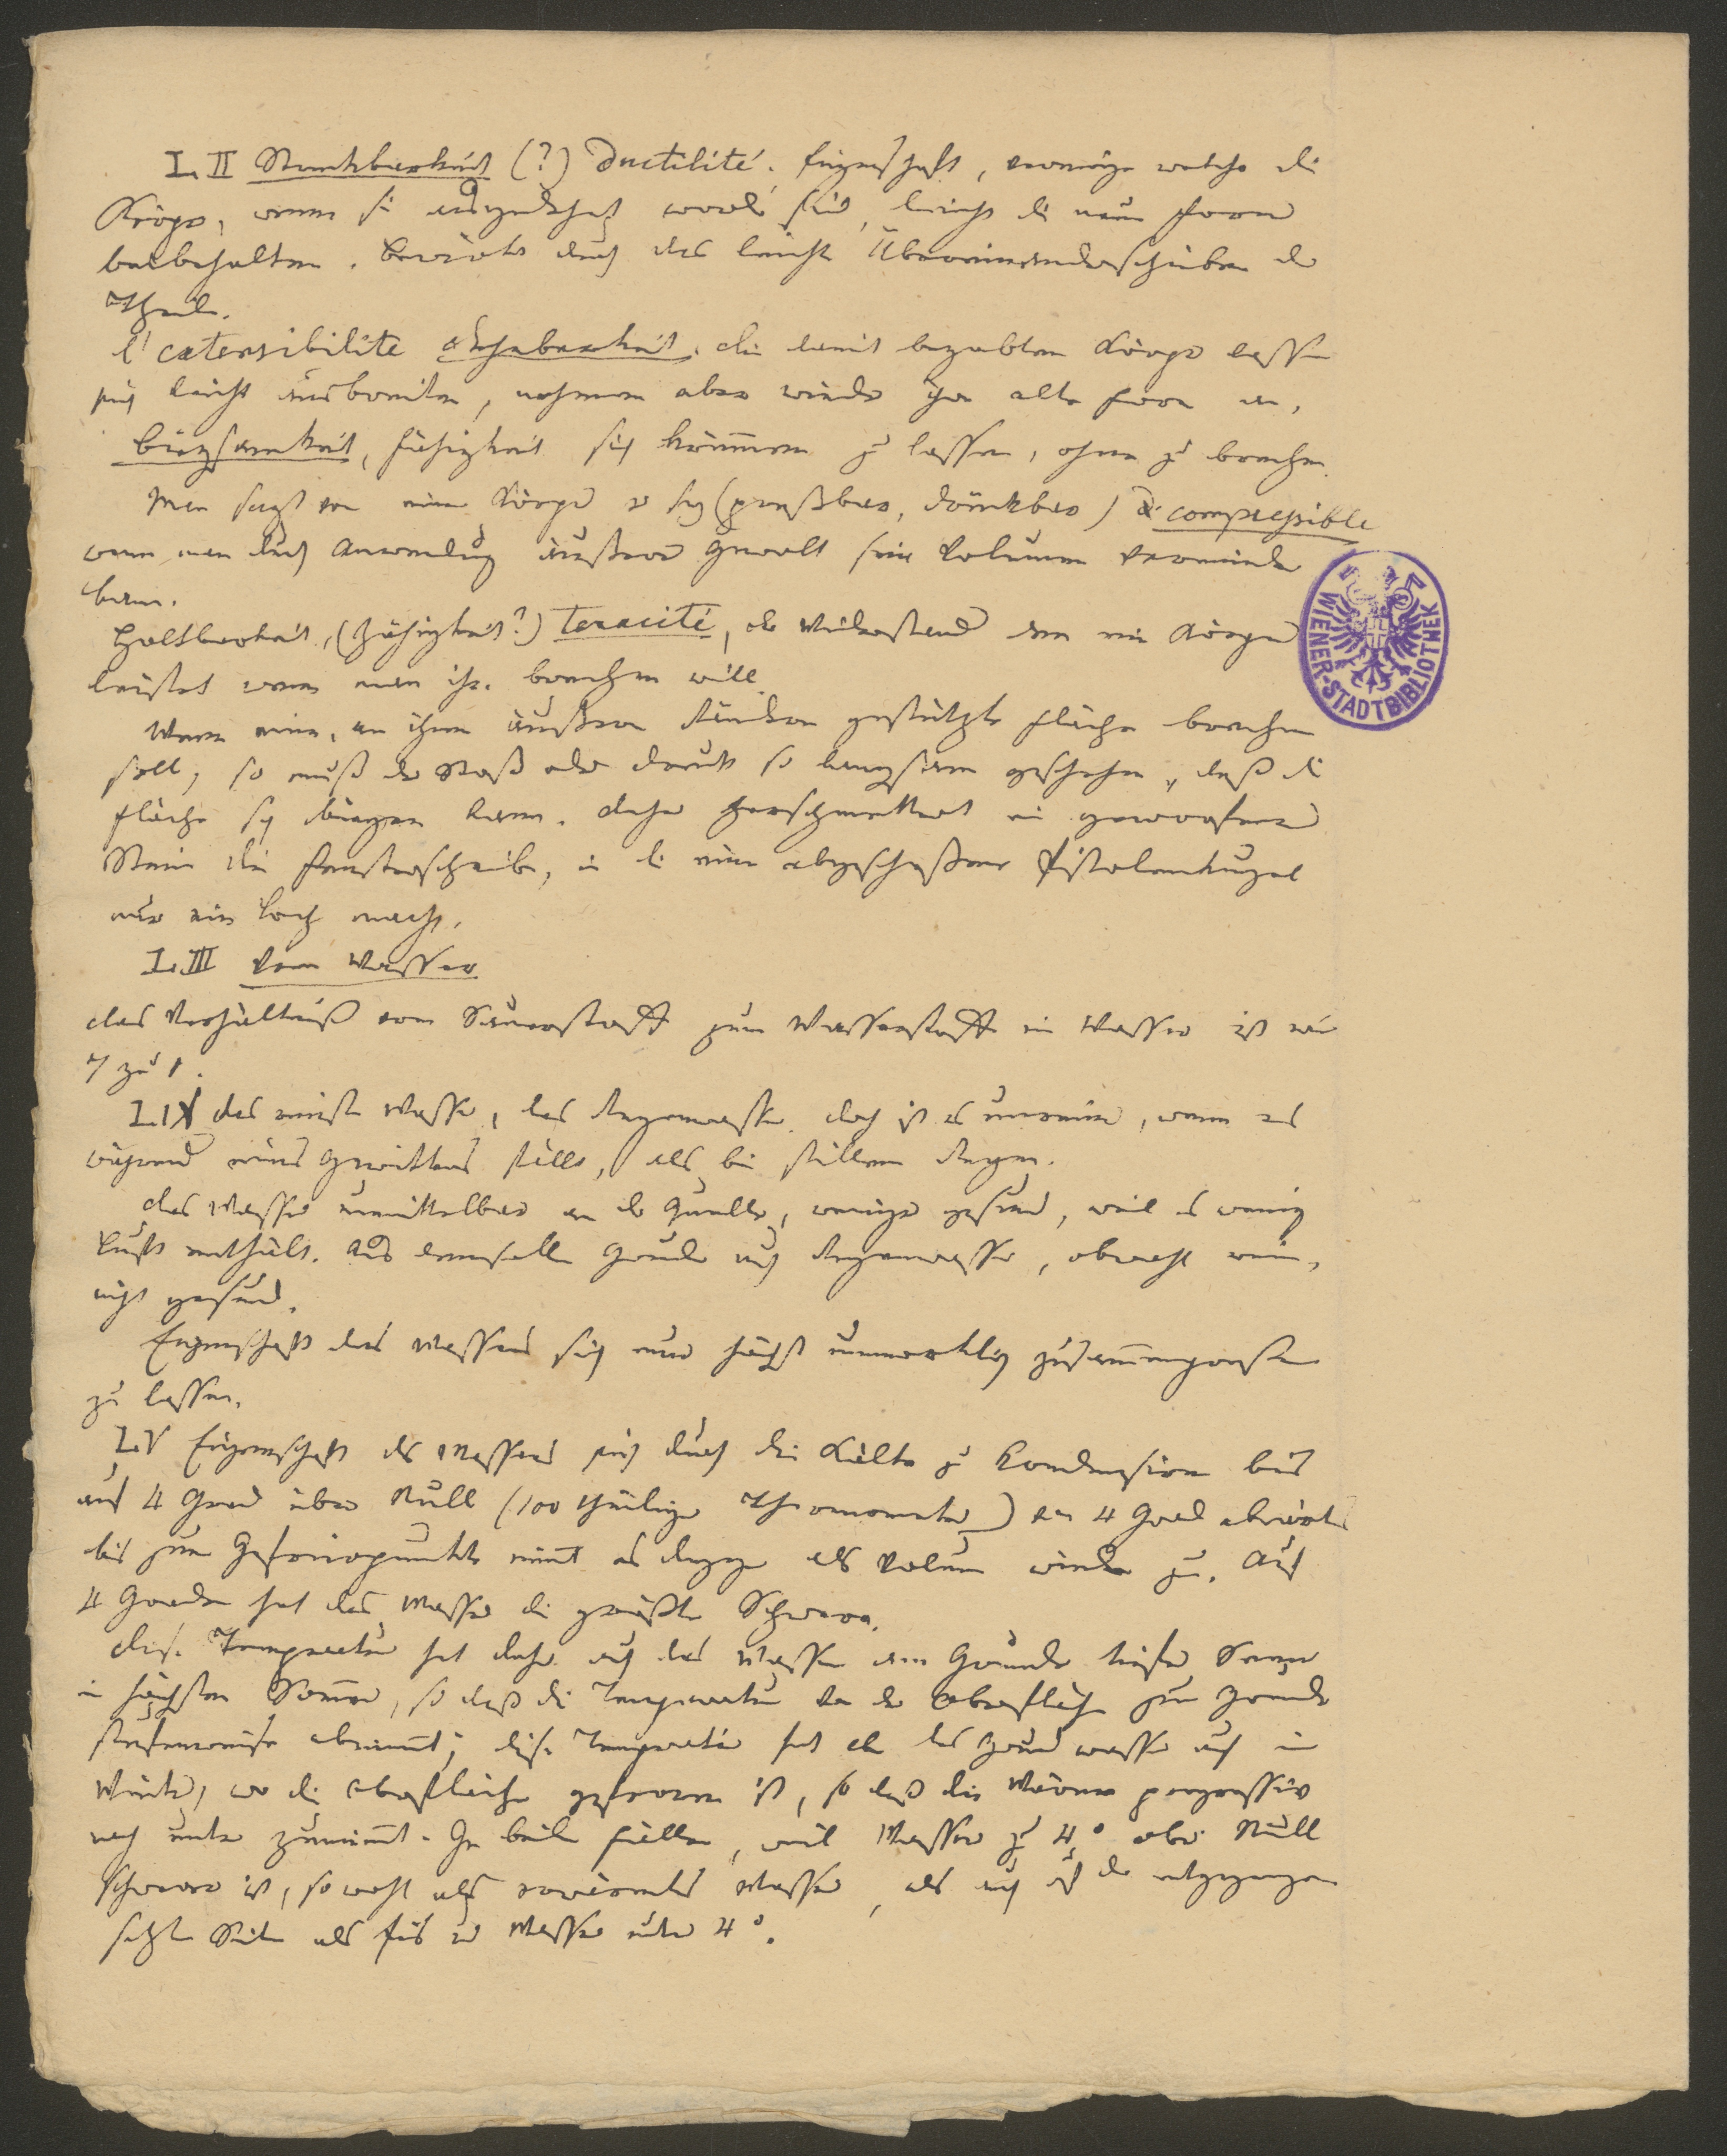 I. II Streckbarkeit (?) Ductilité. Eigenschaft, vermöge welcher die
Körper, wenn sie ausgedehnt worden sind, leicht die neue Form
beibehalten. Bewirkt durch das leichte Übereinanderschieben der
Theile.
l'extensibilité Dehnbarkeit. die damit begabten Körper lassen
sich leicht ausbreiten, nehmen aber wieder ihre alte Form an.
Biegsamkeit, Fähigkeit sich krümmen zu lassen, ohne zu brechen.
Man sagt von einem Körper er sey (preßbar, drückbar) compressible
wenn man durch Anwendung äußerer Gewalt sein Volumen vermindern
kann.
Haltbarkeit, (Zähigkeit?) tenacité, der Widerstand den ein Körper
leistet wenn man ihn brechen will.
Wenn eine, an ihren äußern Rändern gestützte Fläche brechen
soll, so muß der Stoß oder Druck so langsam geschehen, daß die
Fläche sich biegen kann. daher zerschmettert ein geworfener
Stein die Fensterscheibe, in die eine abgeschoßene Pistolenkugel
nur ein Loch macht.
I. III Vom Wasser
das Verhältniß vom Sauerstoff zum Wasserstoff im Wasser ist wie
7 zu 1.
I. IV das reinste Wasser, das Regenwasser. doch ist es unreiner, wenn es
während eines Gewitters fällt, als bei stillem Regen.
das Wasser unmittelbar an der Quelle, weniger gesund, weil es wenig
Luft enthält. Aus demselben Grunde auch Regenwasser, obwohl rein,
nicht gesund.
Eigenschaft des Wassers sich nur höchst unmerklich zusammenpressen
zu lassen.
I. V Eigenschaft des Wassers sich durch die Kälte zu kondensiren bis
auf 4 Grad über Null (100 theiliger Thermometer) von 4 Grad abwärts
bis zum Gefrierpunkte nimmt es dagegen als Volum wieder zu. Auf
4 Graden hat das Wasser die größte Schwere.
diese Temperatur hat daher auch das Wasser am Grunde tiefer Seen
im höchsten Sommer, so daß die Temperatur von der Oberfläche zum Grunde
stufenweise abnimmt; diese Temperatur hat aber das Grundwasser auch im
Winter, wo die Oberfläche gefroren ist, so daß die Wärme progressiv
nach unten zunimmt. In beiden Fällen, weil Wasser zu 4° ober Null
schwerer ist, so wohl als erwärmtes Wasser, als auch auf der entgegenge
setzten Seite als Eis und Wasser unter 4°.
WIENER-STADTBIBLIOTHEK